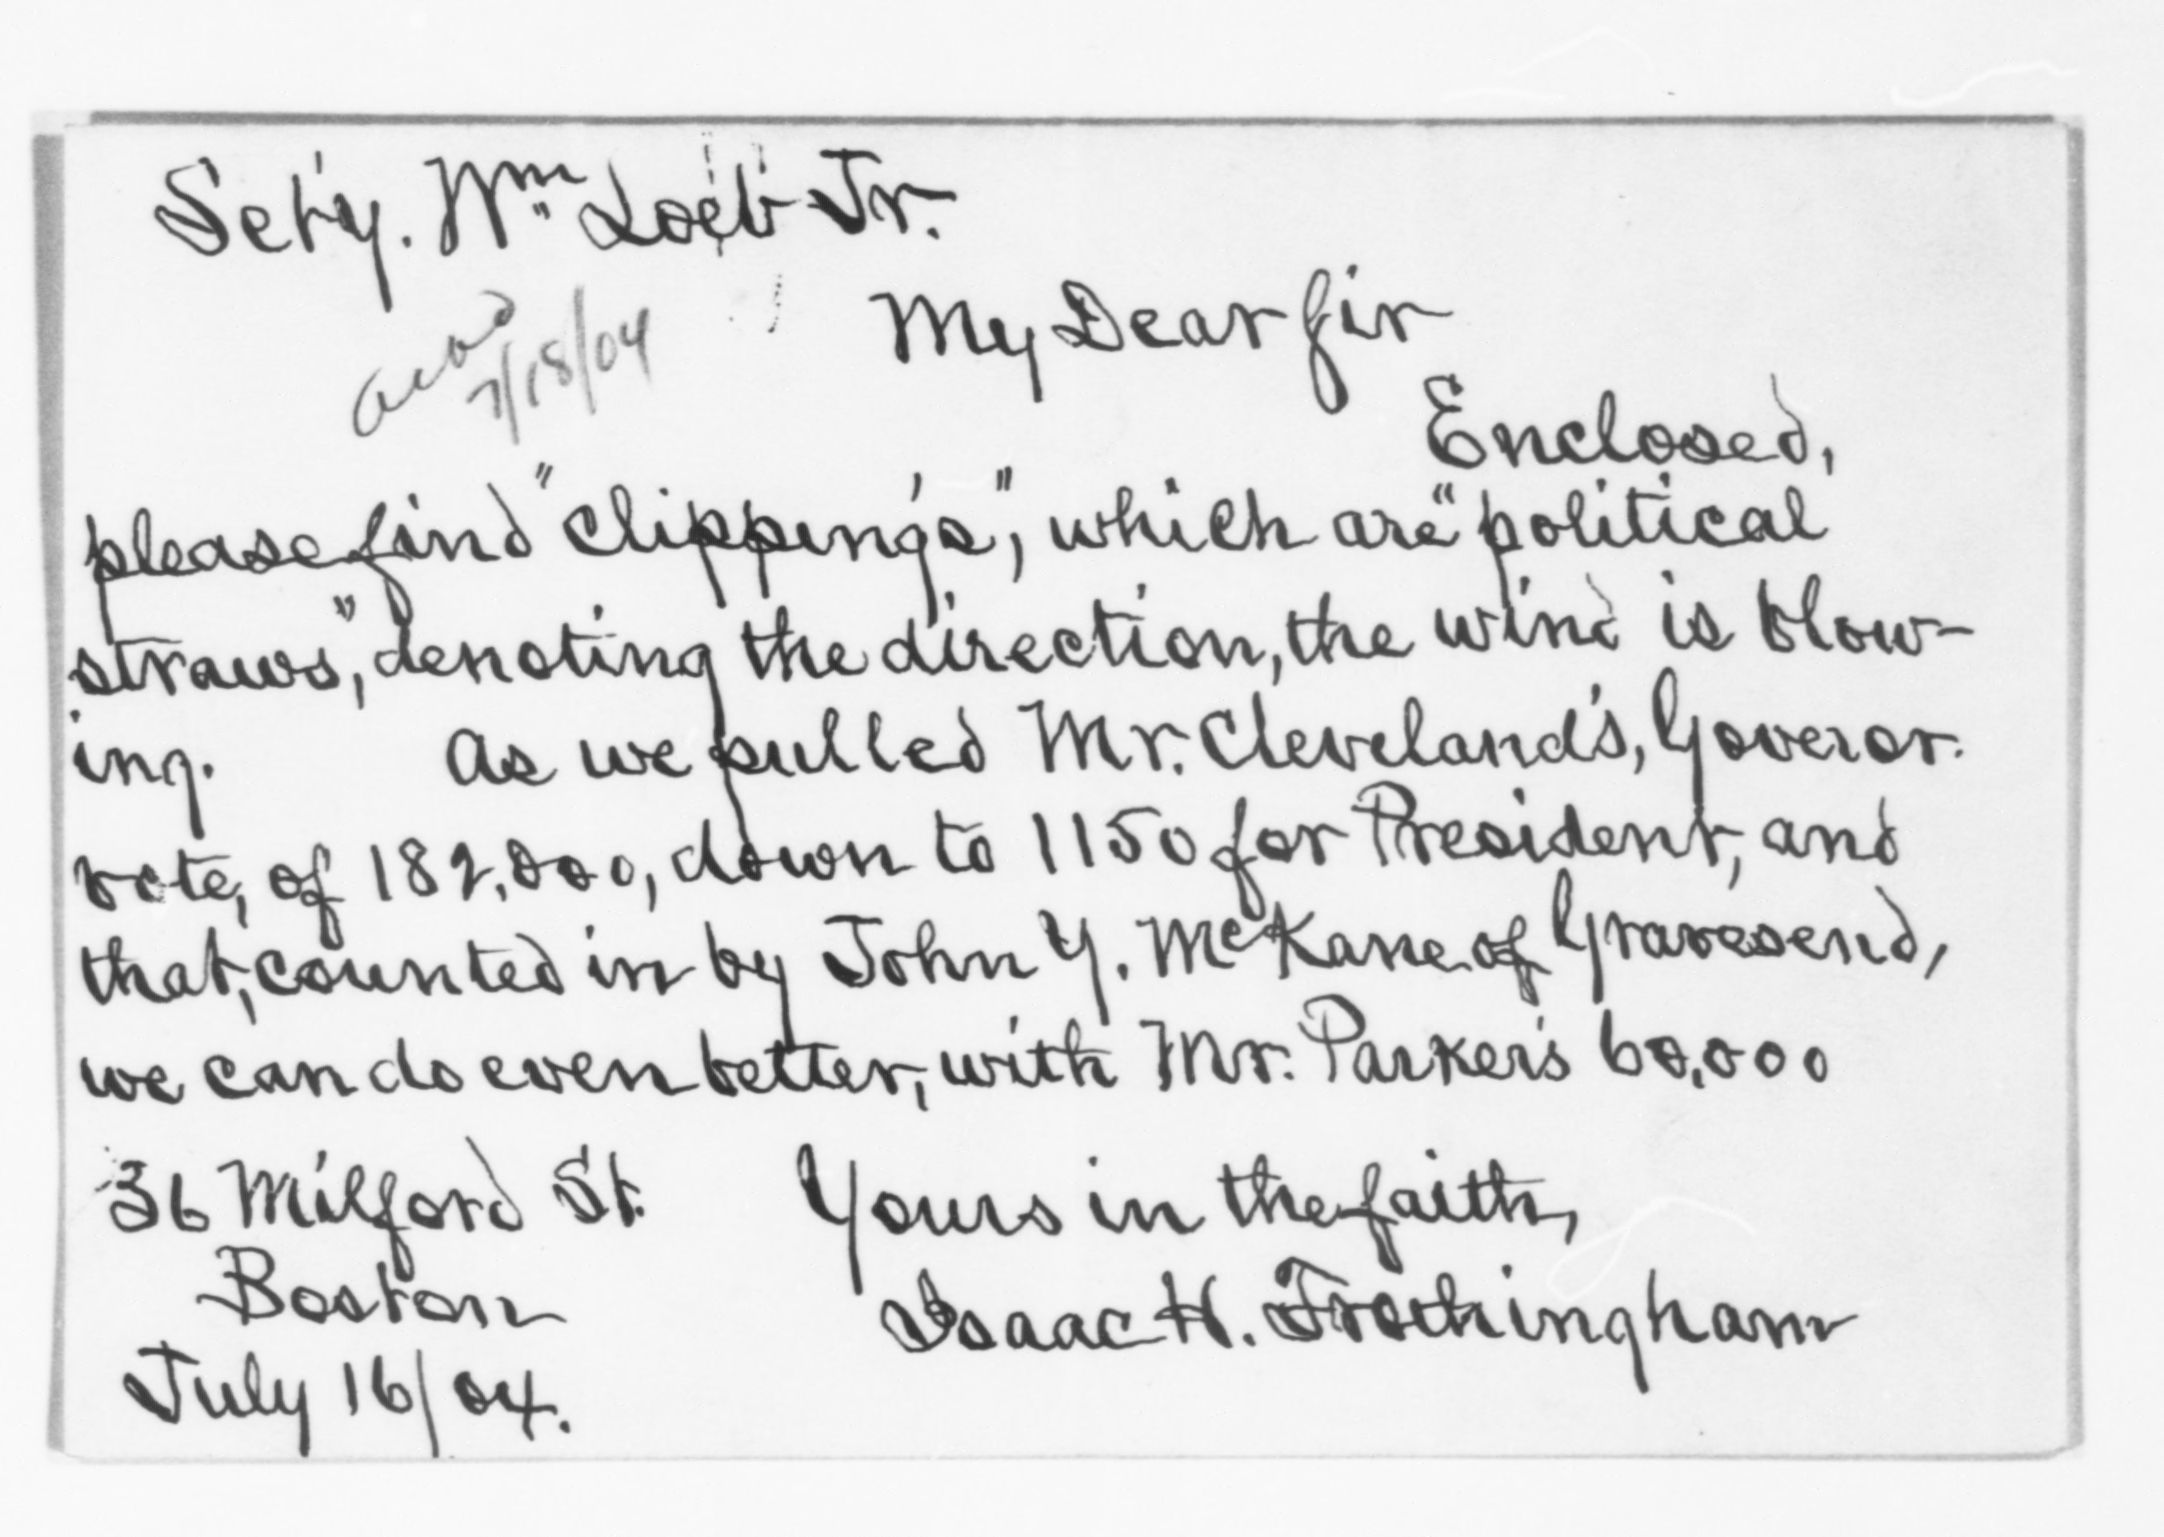 Sec'ty. Wm. Loeb Jr.
My Dear Sir
ackd
7/18/04
Enclosed,
please find "clippings", which are "political
straws", denoting the direction, the wind is blow-
ing. As we pulled Mr. Cleveland's, Goveror.
vote, of 182,000, down to 1150 for President, and
that, counted in by John Y. McKane of Gravesend,
we can do even better, with Mr. Parker's 60,000
36 Milford St. Yours in the faith,
Boston Isaac H. Frothingham
July 16/04.